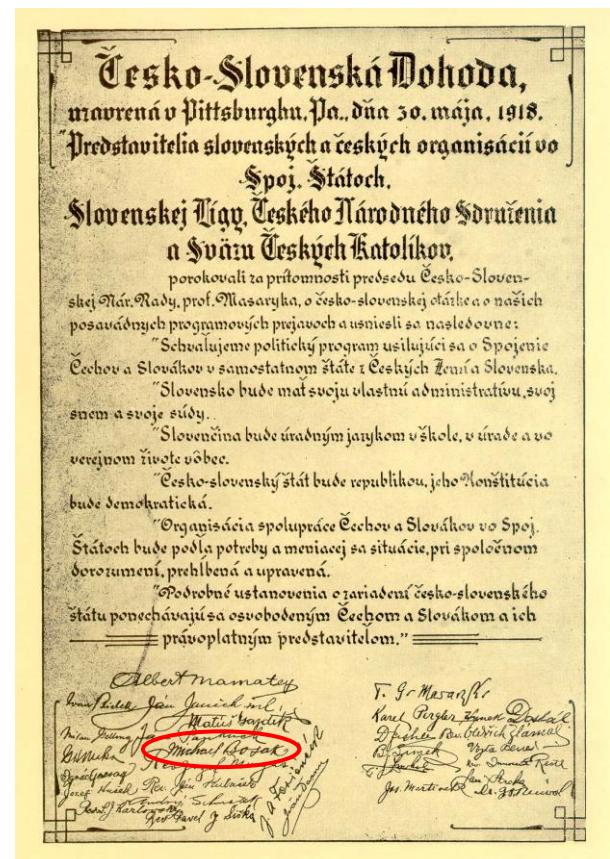 Česko-Slovenská Dohoda,
uzavrená v Pittsburghu, Pa., dňa 30. mája, 1918.
"Predstavitelia slovenských a českých organisácií vo
Spoj. Štátoch,
Slovenskej Ligy, Českého Národného Sdruženia
a Sväzu Českých Katolíkov,
porokovali za prítomnosti predsedu Česko-Sloven-
skej Nár. Rady, prof. Masaryka, o česko-slovenskej otázke a o našich
posavádnych programových prejavoch a usniesli sa nasledovne:
"Schvaľujeme politický program usilujúci sa o Spojenie
Čechov a Slovákov v samostatnom štáte z Českých Zemí a Slovenska.
"Slovensko bude mať svoju vlastnú administratívu, svoj
snem a svoje súdy.
"Slovenčina bude úradným jazykom v škole, v úrade a vo
verejnom živote vôbec.
"Česko-slovenský štát bude republikou, jeho Konštitúcia
bude demokratická.
"Organisácia spolupráce Čechov a Slovákov vo Spoj.
Štátoch bude podľa potreby a meniacej sa situácie, pri spoločnom
dorozumení, prehĺbená a upravená.
"Podrobné ustanovenia o zariadení česko-slovenského
štátu ponechávajú sa osvobodeným Čechom a Slovákom a ich
právoplatným predstaviteľom."
Albert Mamatey
T. G. Masaryk
Ivan Bielek Ján Janček ml.
Karel Pergler Hynek Dostál
Matúš Gajdík
Milan Getting
Oldřich Zlámal
Michael Bosak
Vojta Beneš
Ignác Gessay
Jozef Hušek Rev. Ján Kubašek
Jos. Martinek
Rev. Pavel J. Šiška